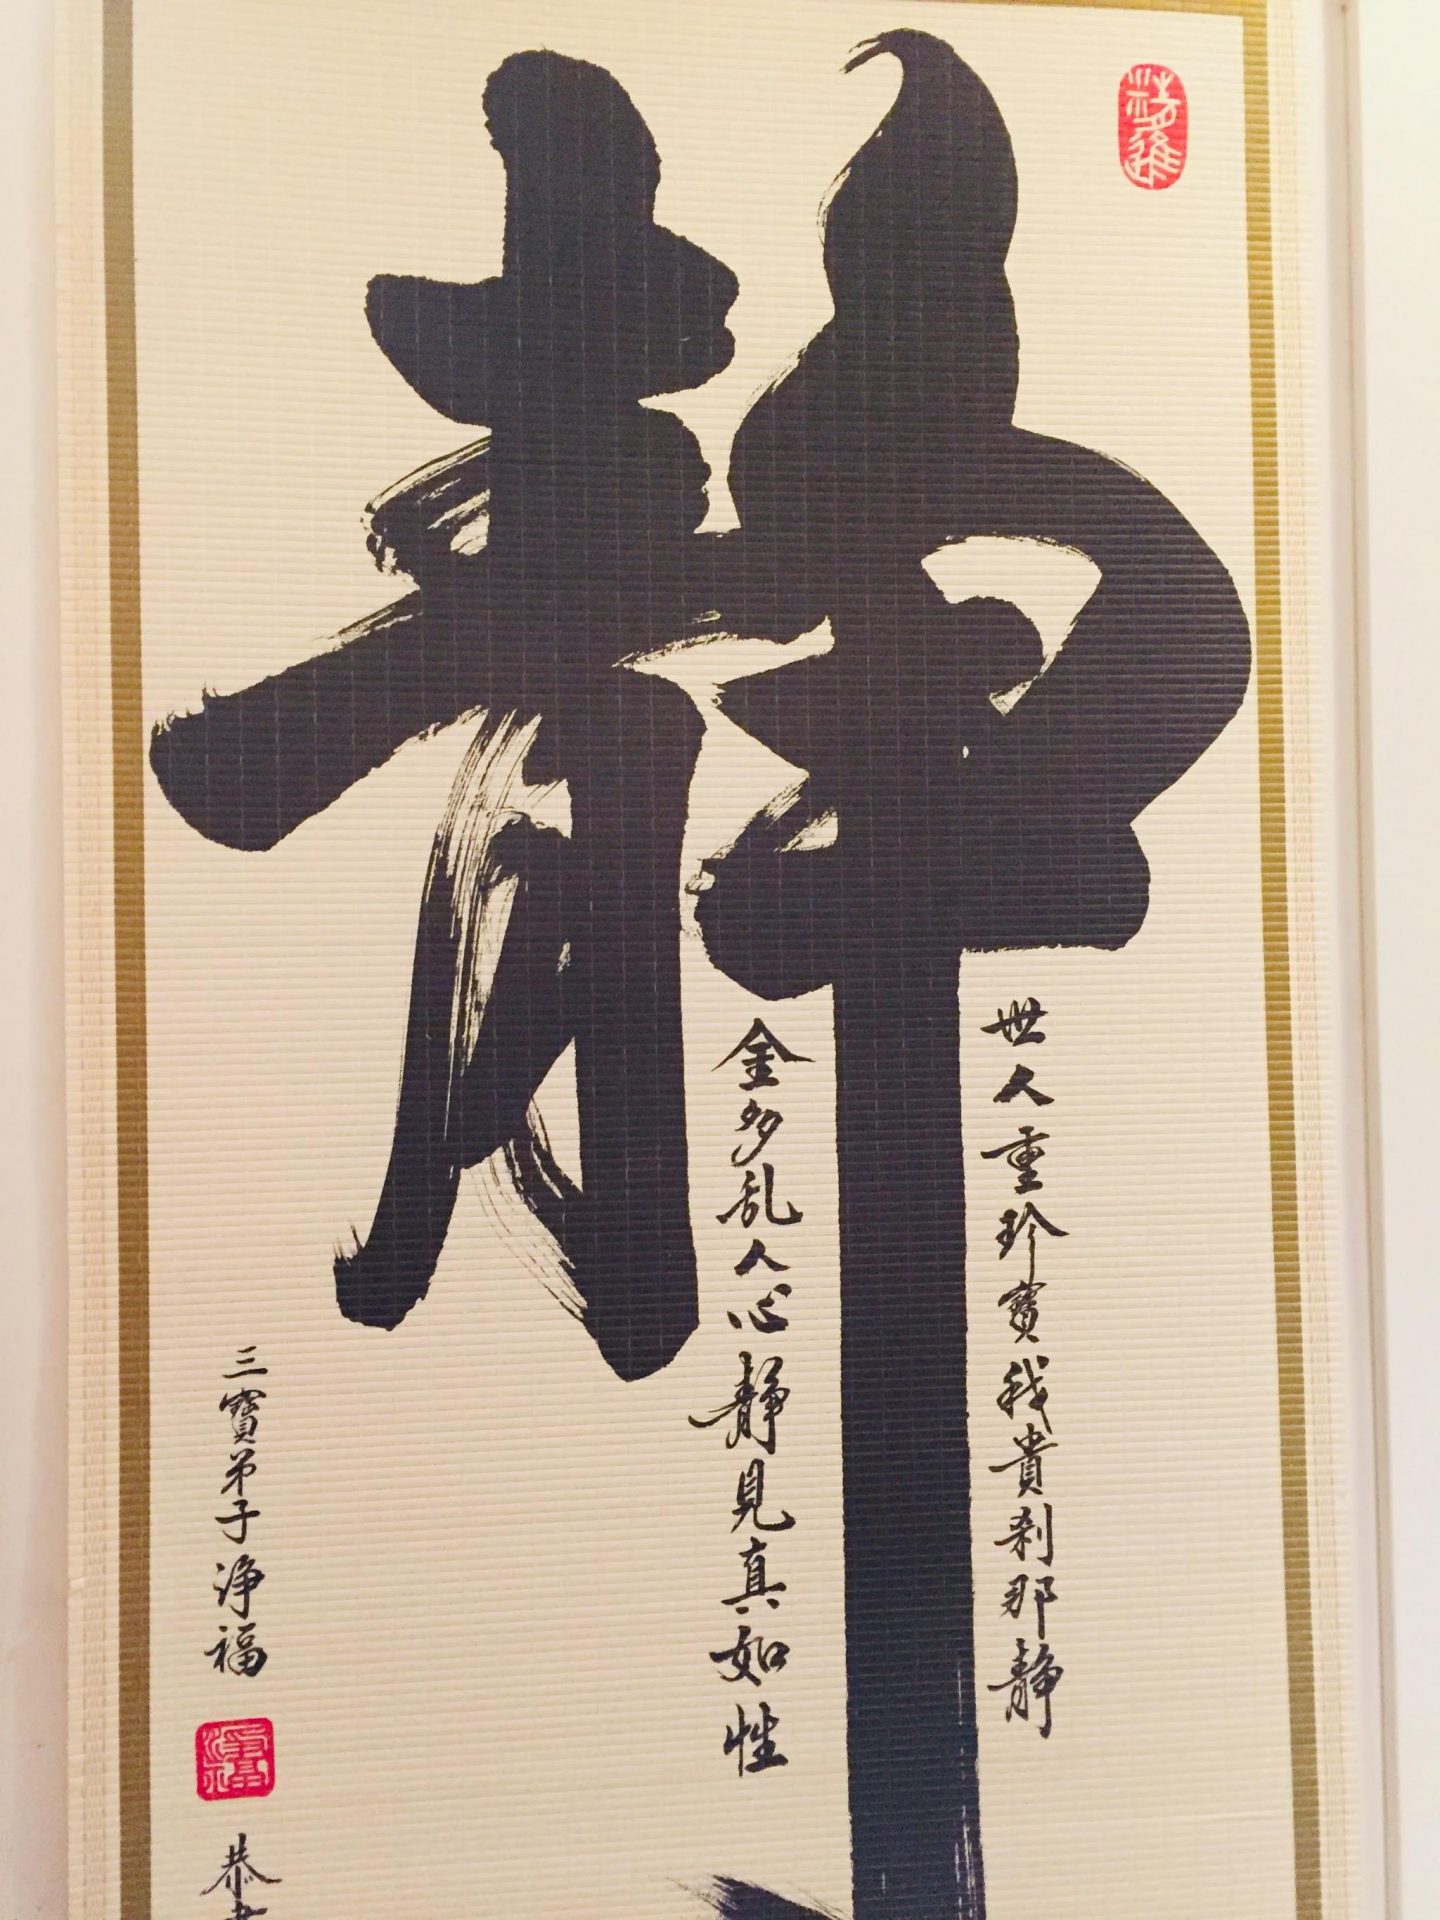 靜
世人重珍寶我貴刹那静
金多乱人心静見真如性
三寶弟子淨福
恭書